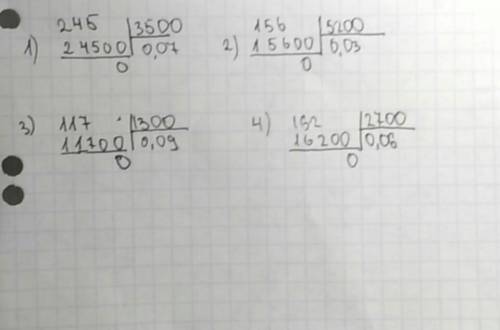 245 3500
1) 24500 0,07
0
156 5200
2) 15600 0,03
0
3) 117 1300
11700 0,09
0
4) 162 2700
16200 0,06
0